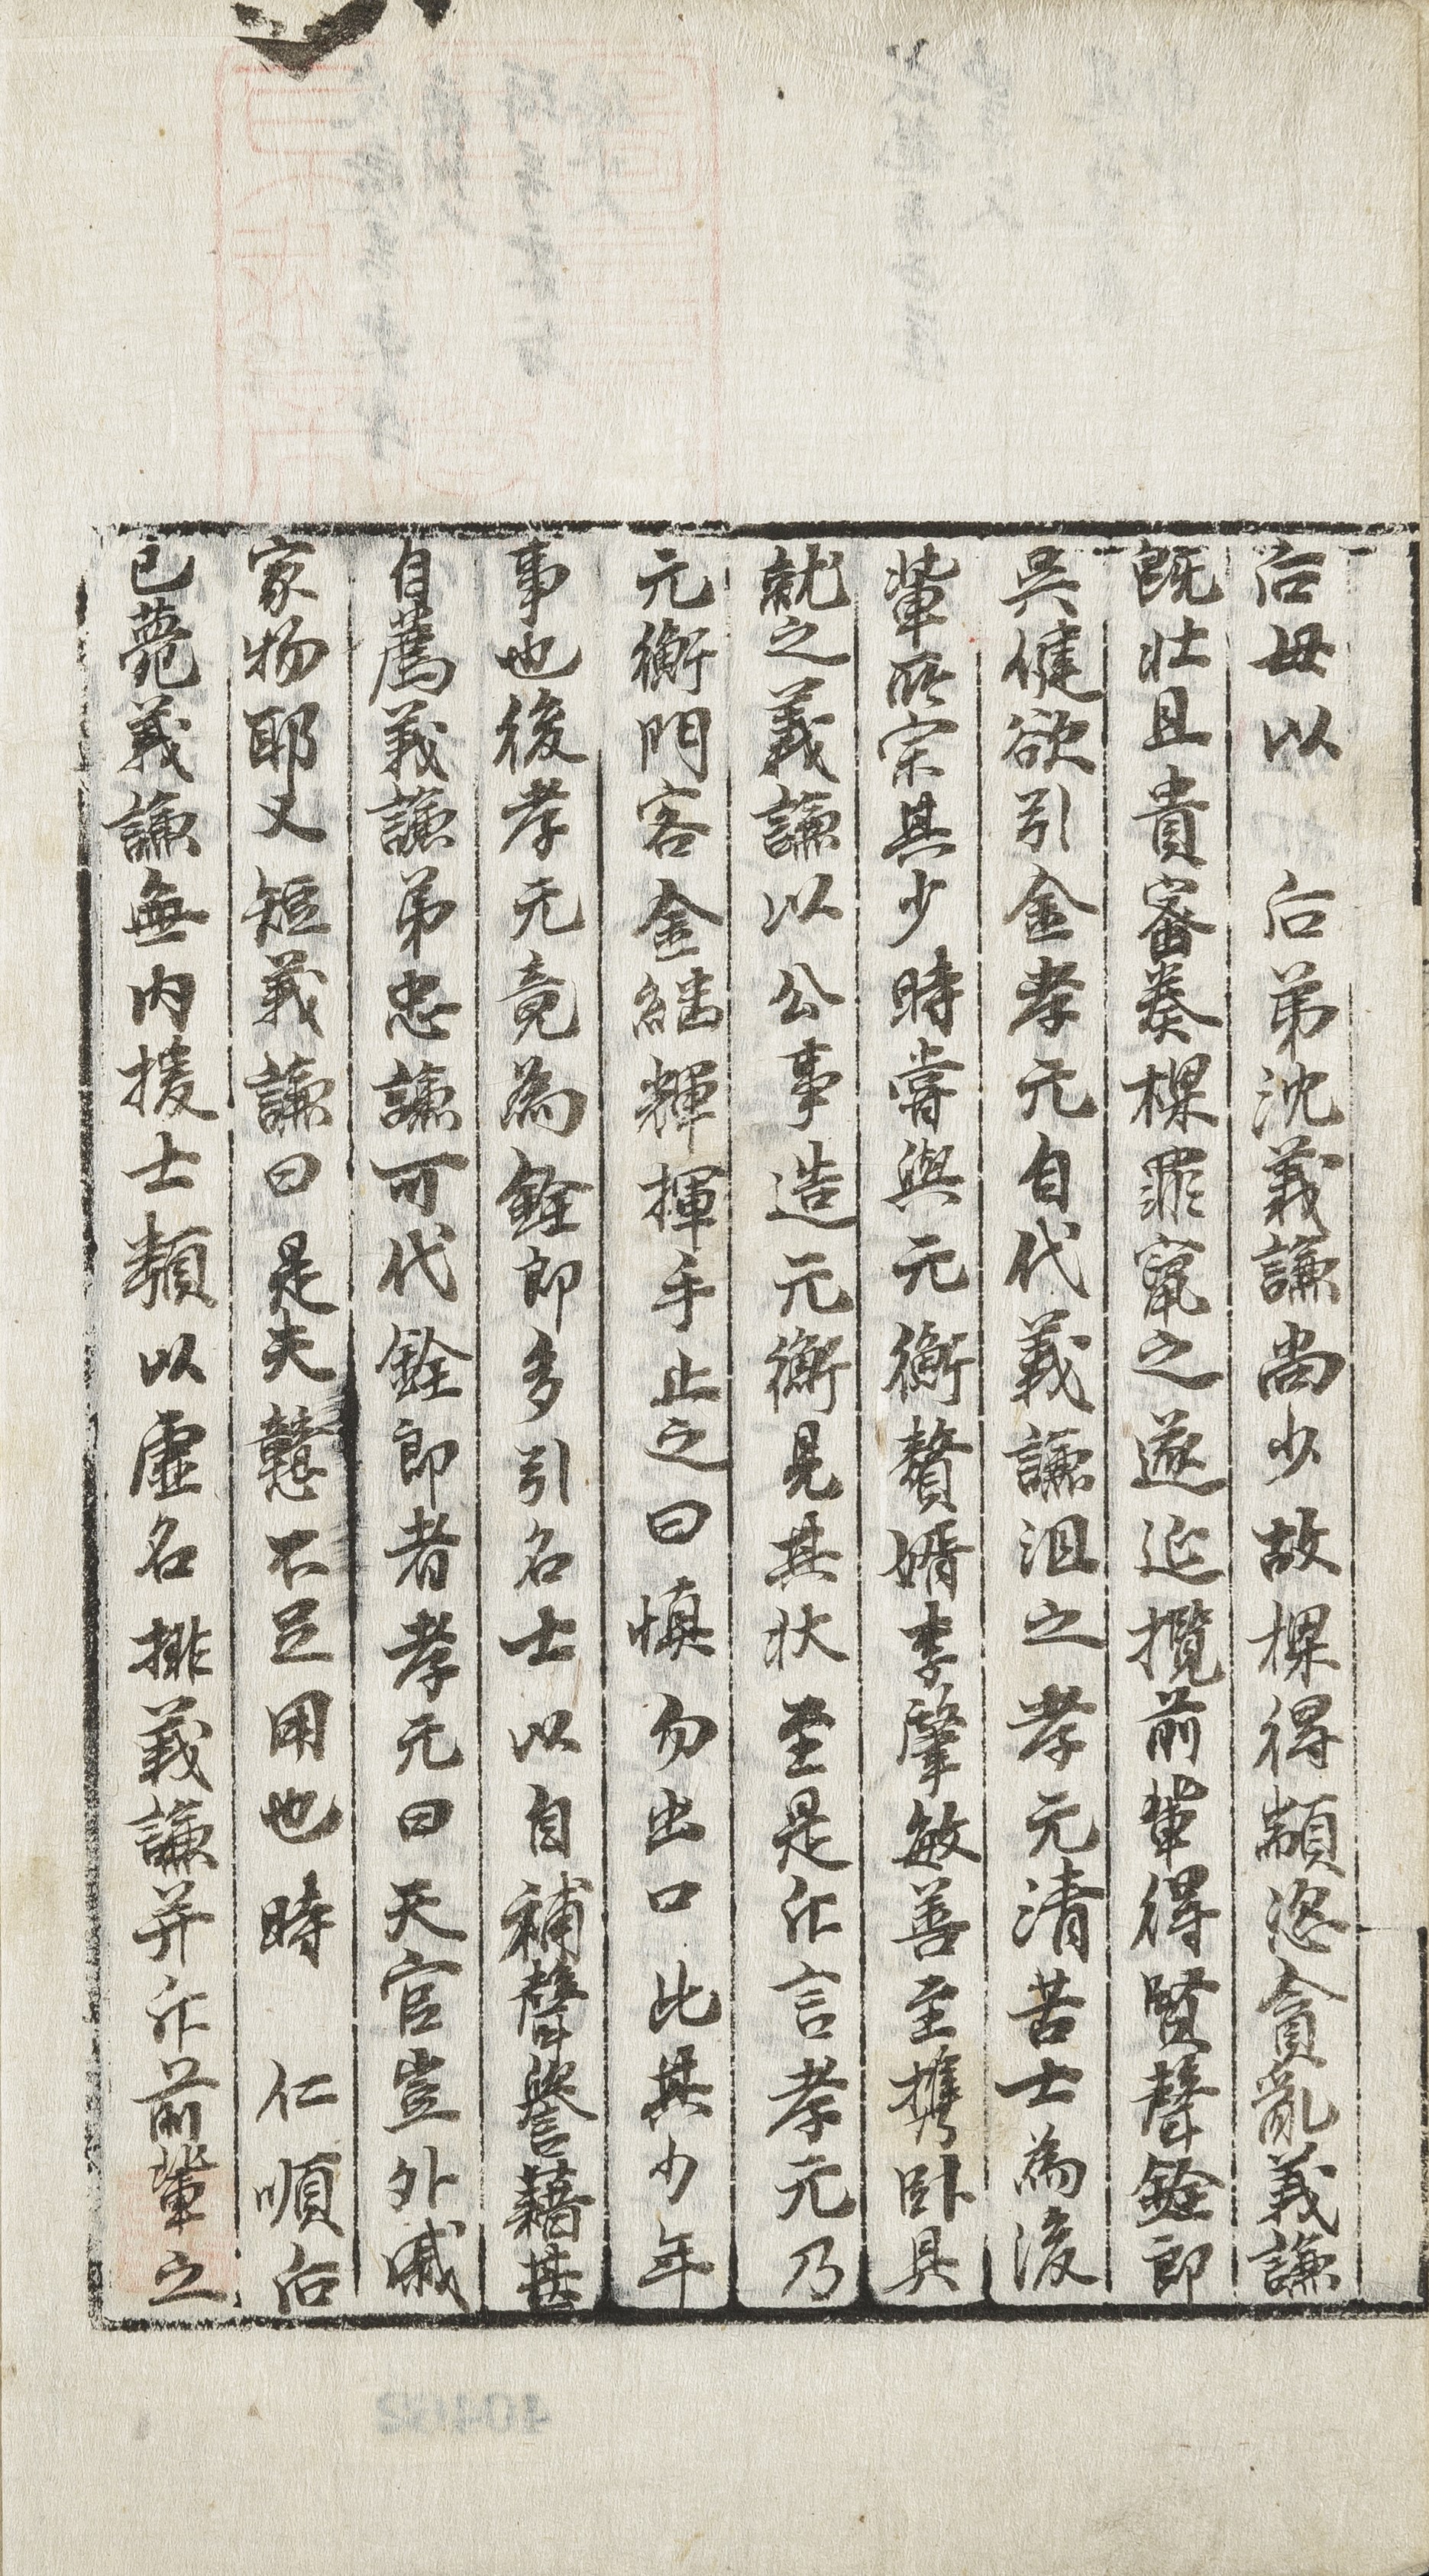 后母以　后弟沈義謙尚少故樑得顓恣貪亂義謙
既壯且貴審奏樑罪竄之遂延攬前輩得賢聲銓郎
吳健欲引金孝元自代義謙沮之孝元清苦士爲後
輩所宗其少時嘗與元衡贅婿李肇敏善至携臥具
就之義謙以公事造元衡見其狀至是斥言孝元乃
元衡門客金繼輝揮手止之曰愼勿出口此其少年
事也後孝元竟爲銓郎多引名士以自補聲譽藉甚
自薦義謙弟忠謙可代銓郎者孝元曰天官豈外戚
家物耶又短義謙曰是夫戇不足用也時　仁順后
已薨義謙無內援士類以虛名排義謙并斥前輩之